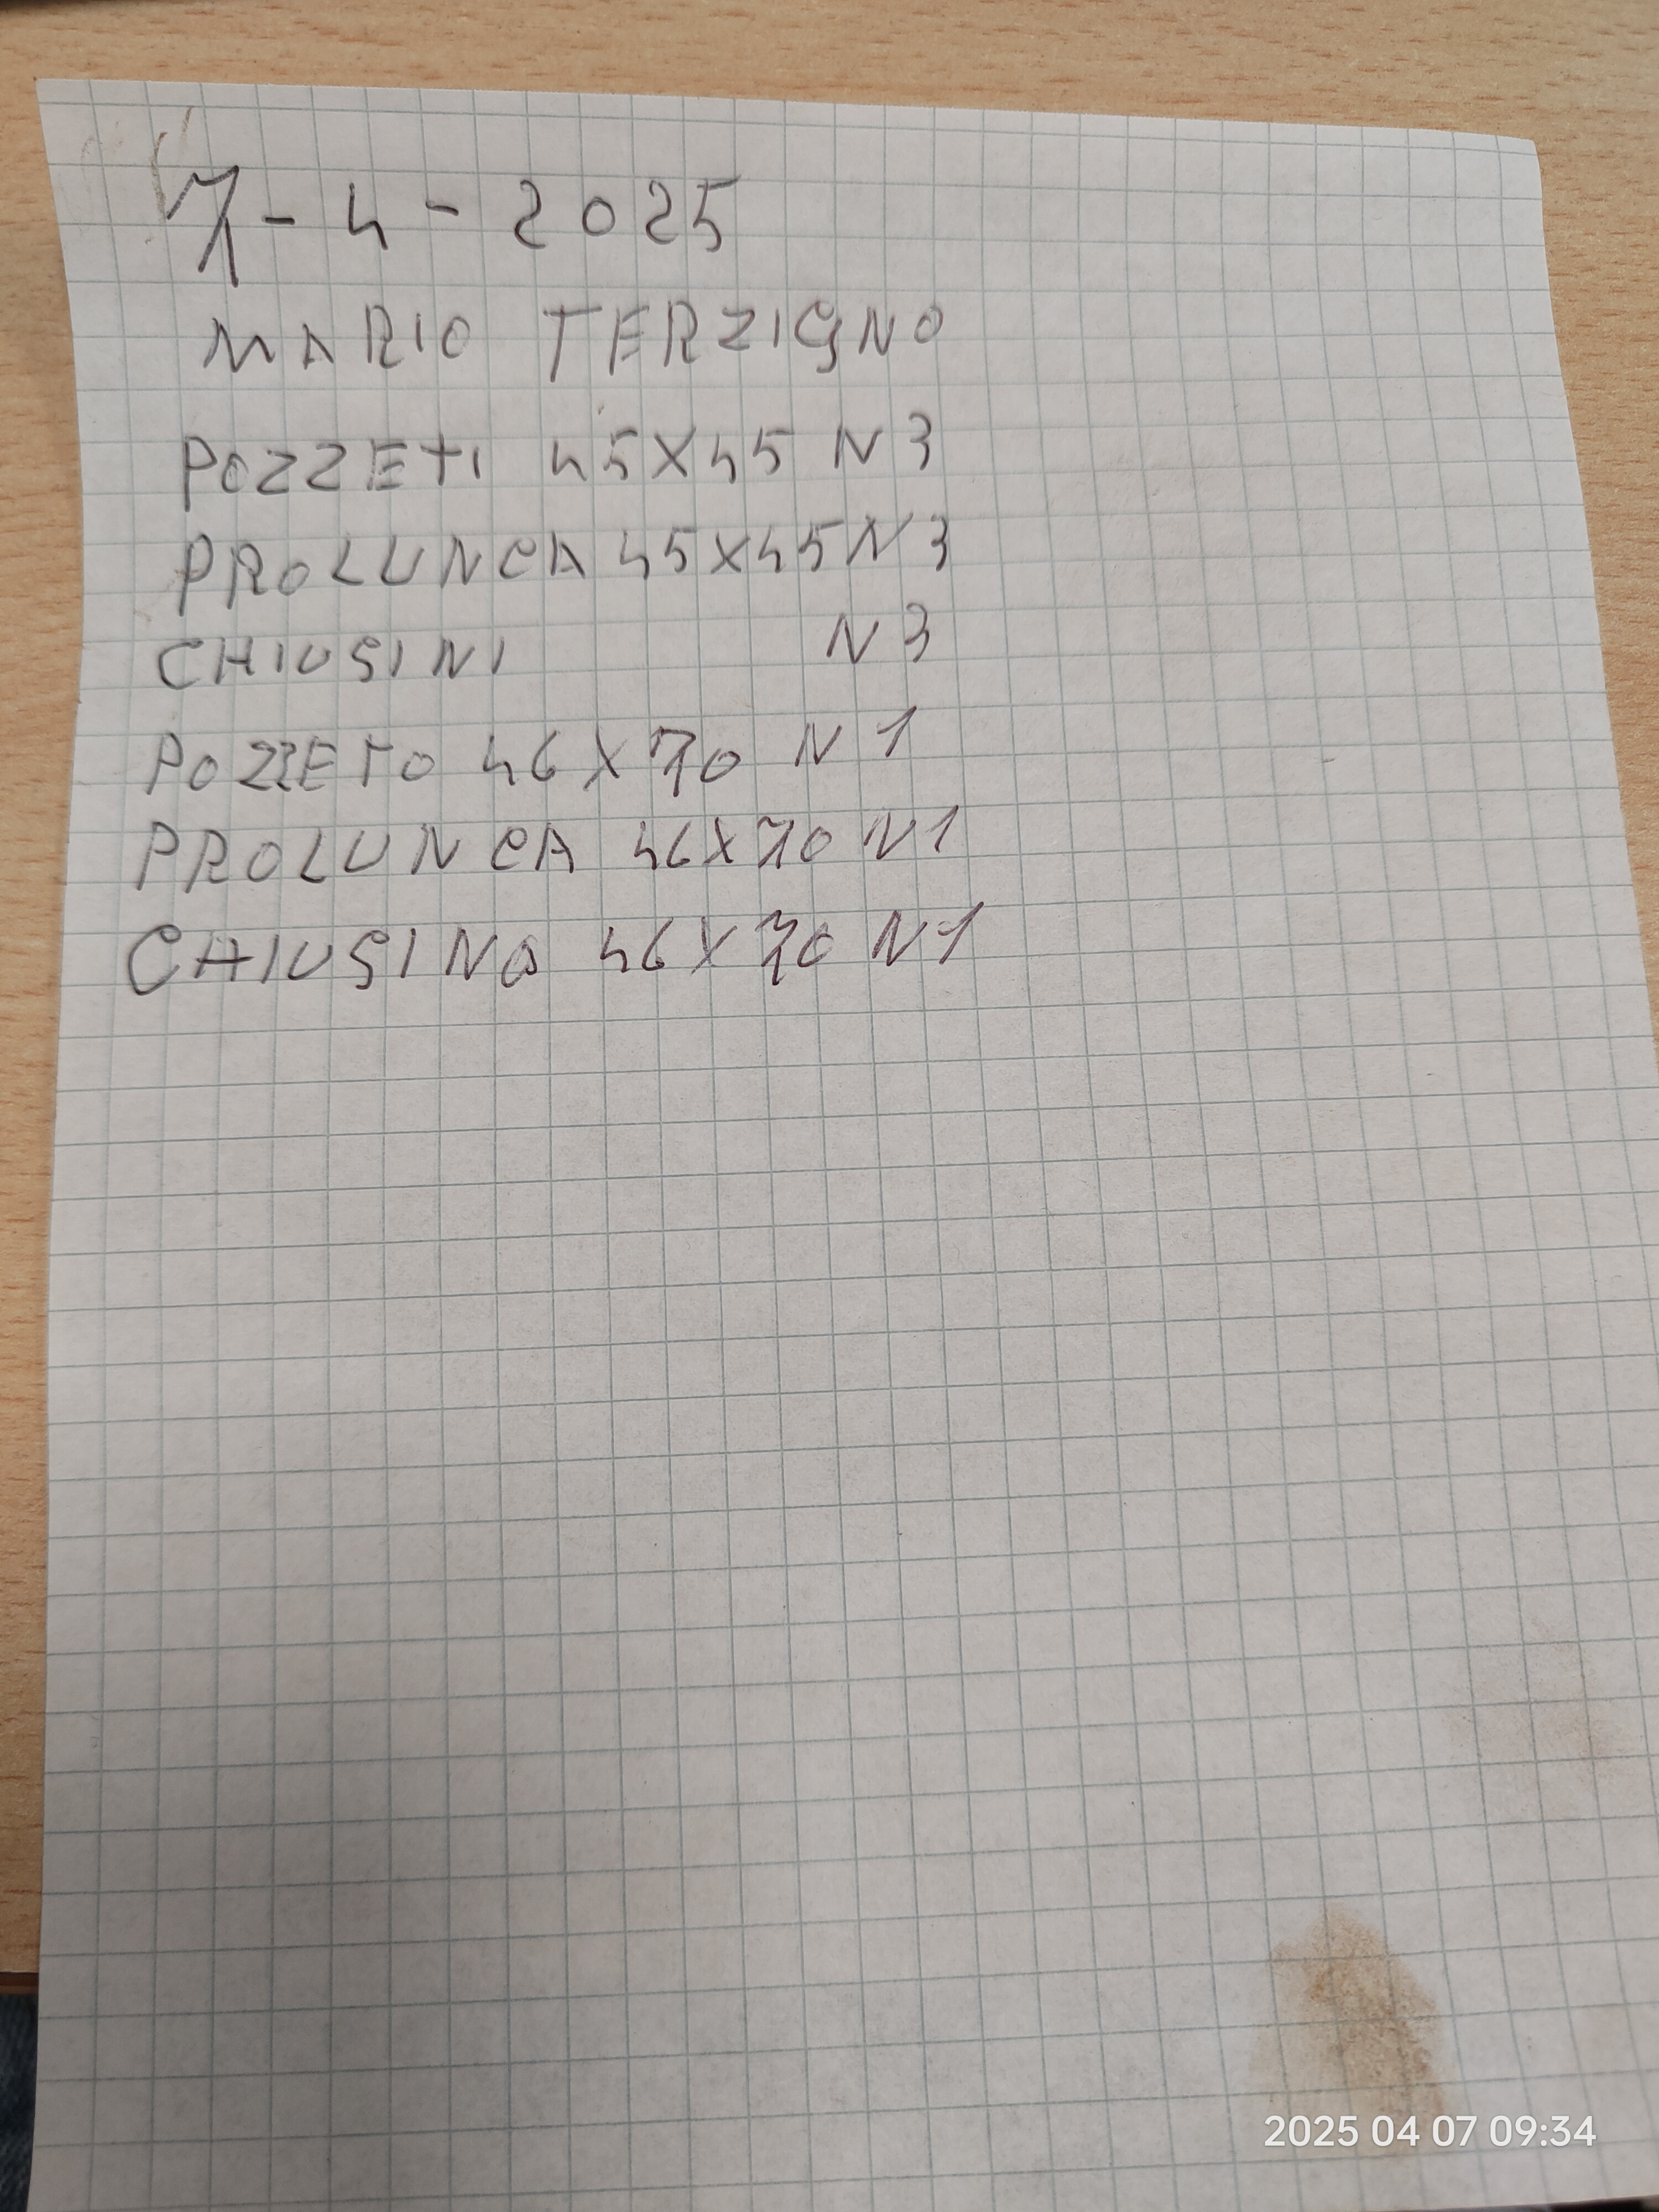 7-4-2025
MARIO TERZIGNO
POZZETI 45X45 N 3
PROLUNCA 45X45 N 3
CHIUSINI N 3
POZZETO 46X70 N 1
PROLUNCA 46X70 N 1
CHIUSINO 46X70 N 1
2025 04 07 09:34